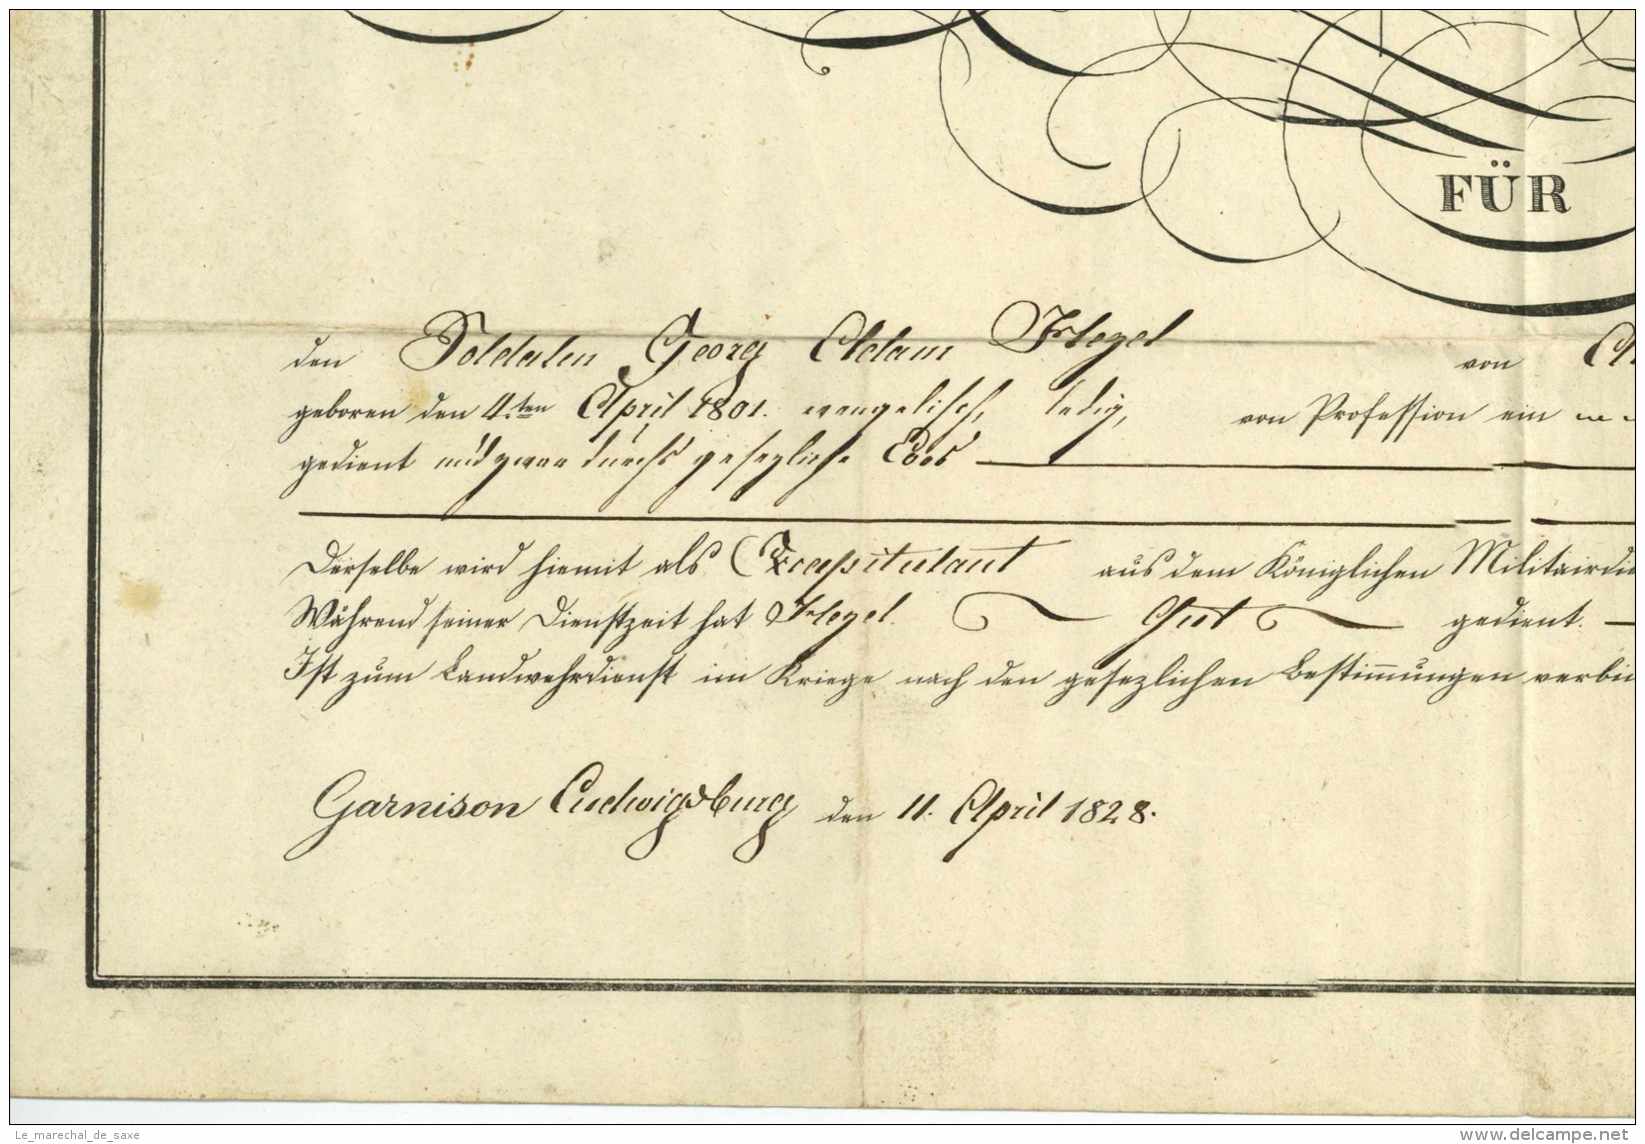 FÜR
den Soldaten Georg Adam Flegel von
geboren den 4.ten April 1801. evangelisch, ledig, von Profession ein
gedient und zwar durchs gesezliche Loos
Derselbe wird hiemit als Excapitulant aus dem Königlichen Militairdie
Während seiner Dienstzeit hat Flegel. Gut gedient.
Ist zum Landwehrdienst im Kriege nach den gesezlichen Bestim̅ungen verbin
Garnison Ludwigsburg den 11. April 1828.
Le_marechal_de_saxe
www.delcampe.net